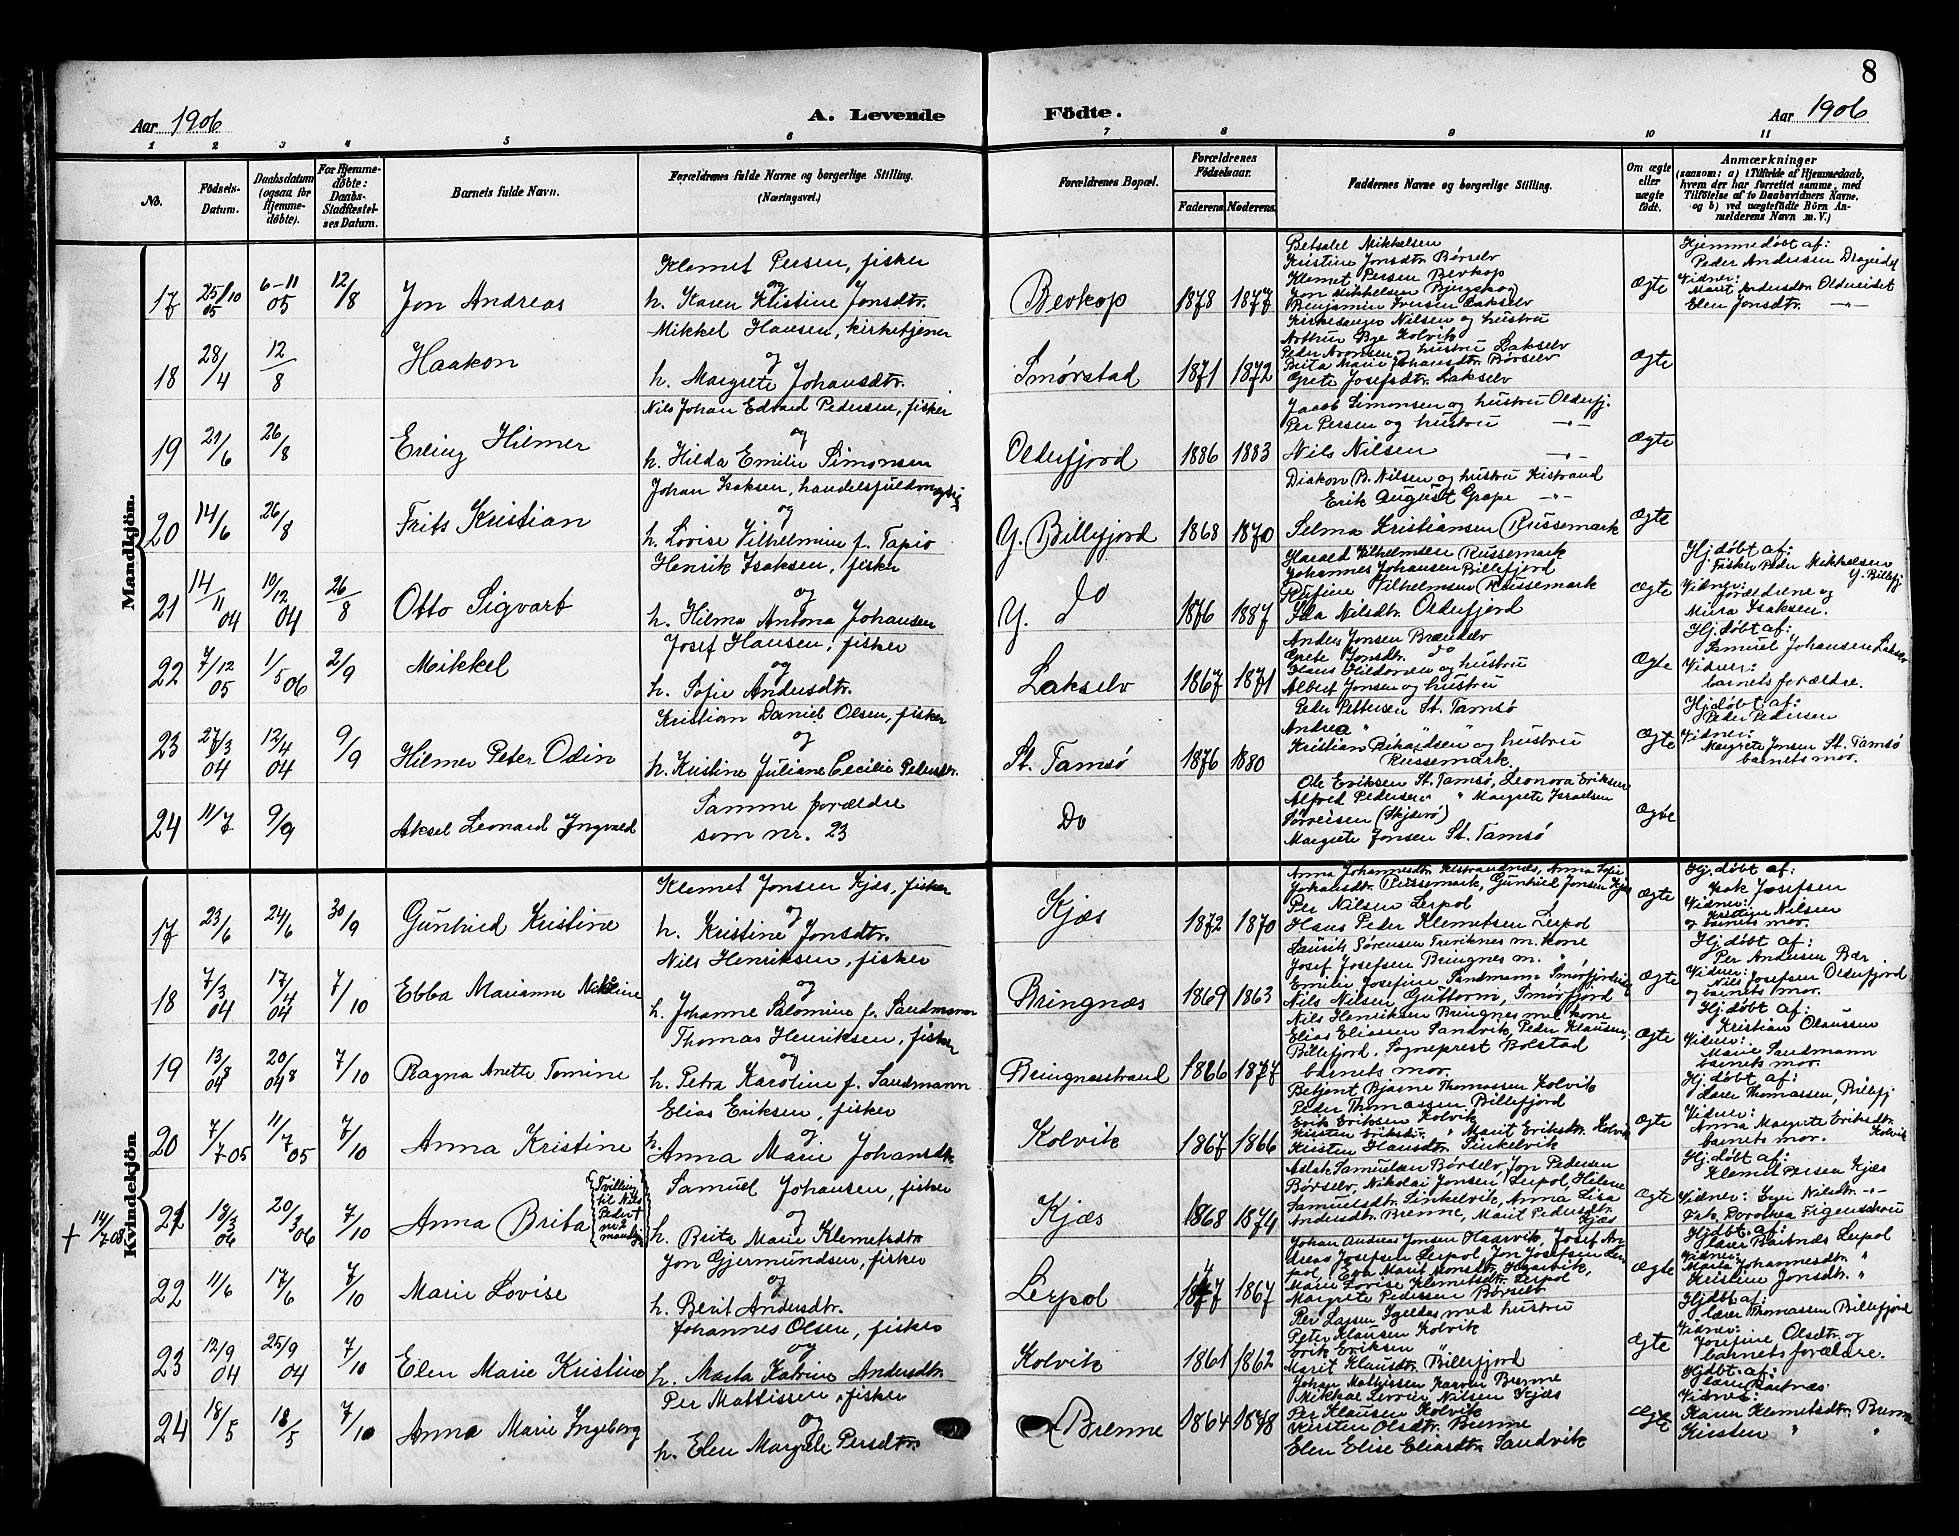 8
Aar 1906
A. Levende
Födte.
Aar 1906
1 2 3 4 5 6 7 8 9 10 11
No.
Födsels-
Datum.
Daabsdatum
(ogsaa for
Hjemme-
döbte).
For Hjemme-
döbte:
Daabs-
Stadfæstel-
ses Datum.
Barnets fulde Navn.
Forældrenes fulde Navne og borgerlige Stilling.
(Næringsvei.)
Forældrenes Bopæl.
Forældrenes
Födselsaar.
Faderens
Moderens
Faddernes Navne og borgerlige Stilling.
Om ægte
eller
uægte
födt.
Anmærkninger
(saasom: a) i Tilfælde af Hjemmedaab,
hvem der har forrettet samme, med
Tilföielse af to Daabsvidners Navne.
og b) ved uægtefödte Börn An-
melderens Navn m. V.)
Mandkjön.
17
25/10 05
6-11 05
12/8
Jon Andreas
Klemet Persen, fisker
og
h. Karen Kristine Jonsdtr.
Bevkop
1878
1877
Betsalel Mikkelsen
Kristine Jonsdtr. Børselv
Klemet Persen Bevkop
Jon Mikkelsen
Benjamin Iversen Lakselv
Ægte
Hjemmedøbt af:
Peder Andersen
Vidner:
Marit Andersdtr. Oldereidet
Elen Jonsdtr. -"-
18
28/4
12/8
Haakon
Mikkel Hansen, kirketjener
og
h. Margrete Johansdtr.
Smørstad
1871
1872
Kirkesanger Nilsen og hustru
Arthur Bye Kolvik
Peder Aronsen og hustru Lakselv
Brita Marie Johansdtr. Børselv
Grete Josefsdtr. Lakselv
Ægte
19
21/6
26/8
Erling Hilmer
Nils Johan Edvard Pedersen, fisker
og
h. Hilda Emilie Simonsen
Olderfjord
1886
1883
Jacob Simonsen og hustru Olderfj.
Per Persen og hustru -"-
Nils Nilsen -"-
Ægte
20
14/6
26/8
Frits Kristian
Johan Isaksen, handelsfuldmægtig
og
h. Lovise Vilhelmine f. Tapio
Y. Billefjord
1868
1870
Diakon B. Nilsen og hustru Kistrand
Erik August Grape -"-
Selma Kristiansen (Russemark
Ægte
21
14/11 04
10/12 04
26/8
Otto Sigvart
Henrik Isaksen, fisker
og
h. Hilma Antona Johansen
Y. do
1876
1887
Harald Vilhelmsen (Russemark
Johannes Johansen Billefjord
Rufine Vilhelmsen (Russemark
Ida Nilsdtr. Olderfjord
Ægte
Hj. døbt af:
Fisker Peder Mikkelsen
Y. Billefj
Vidner:
forældrene og
Mina Isaksen.
22
7/12 05
1/5 06
2/9
Mikkel
Josef Hansen, fisker
og
h. Sofie Andersdtr.
Lakselv
1867
1871
Anders Jonsen Brændelv
Grete Jonsdtr. do
Hans Hildonen og hustru
Albert Jonsen og hustru
Ægte
Hj. døbt af:
Samuel Johansen Lakselv
Vidner:
barnets forældre.
23
27/3 04
12/4 04
9/9
Hilmer Peter Odin
Kristian Daniel Olsen, fisker
og
h. Kristine Juliane Cecilie Pedersdtr.
St. Tamsø
1876
1880
Peder Pettersen St. Tamsø
Andrea " "
Kristian Rikardsen og hustru
Russemark.
Ægte
Hj. døbt af:
Peder Pedersen
Vidner:
Margrete Jonsen St. Tamsø
barnets mor.
24
11/7
9/9
Aksel Leonard Ingvald
Samme forældre
som nr. 23
Do
Ole Eriksen St. Tamsø, Leonora Eriksen
Alfred Pedersen " Margrete Israelsen
Sørensen (Skjervø)
Margrete Jonsen St. Tamsø
Ægte
Kvindekjön.
17
23/6
24/6
30/9
Gunhild Kristine
Klemet Jonsen Kjæs, fisker
og
h. Kristine Jonsdtr.
Kjæs
1872
1870
Anna Johannesdtr. Kistrandnæs, Anna Sofie
Johansdtr. Russemark, Gunhild Jonsen Kjæs
Per Nilsen Lerpol
Hans Peder Klemetsen Lerpol
Ægte
Hj. døbt af:
Isak Josefsen
Vidner:
Kristine Nilsen
og barnets mor.
18
7/3 04
17/4 04
7/10
Ebba Marianne Nikoline
Nils Henriksen, fisker
og
h. Johanne Salomine f. Sandmann
Bringnæs
1869
1863
Laurits Sørensen Treviknes m. kone
Josef Josefsen Bringnes m. "
Emilie Josefine Sandmann Smørfjord
Nils Nilsen Guttorm, Smørfjord
Ægte
Hj. døbt af:
Per Andersen Bær.
Vidner:
Nils Josefsen Olderfjord
og barnets mor.
19
13/8 04
20/8 04
7/10
Ragna Anette Tomine
Thomas Henriksen, fisker
og
h. Petra Karoline f. Sandmann
Bringnesstrand
1866
1877
Nils Henriksen Bringnes med kone
Elias Eliassen Sandvik, Peder Klausen,
Billefjord, Sogneprest Bolstad
barnets mor.
Ægte
Hj. døbt af:
Kristian Olaussen
Vidner:
Marie Sandmann
barnets mor.
20
7/7 05
11/7 05
7/10
Anna Kristine
Elias Eriksen, fisker
og
h. Anna Marie Johansdtr.
Kolvik
1867
1866
Betjent Bjarne Thomassen Kolvik
Peder Thomassen Billefjord
Erik Eriksen Kolvik
Kirsten Eriksdtr. " Marit Eriksdtr. Kolvik
Kirsten Hansdtr. Sinkelvik
Ægte
Hj. døbt af:
Lærer Thomassen, Billefj
Vidner:
Anna Margrete Eriksdtr.
barnets mor. Kolvik
+ 14/7 08
21
18/3 06
20/3 06
7/10
Anna Brita
Tvilling
til Nils
Peder
Samuel Johansen, fisker
og
h. Brita Marie Klemetsdtr.
Kjæs
1868
1874
Aslak Samuelsen Børselv, Jon Pedersen
Børselv, Nikolai Jonsen Lerpol, Helene
Samuelsdtr. Sinkelvik, Anna Lisa
Andersdtr. Brenne, Marit Pedersdtr.
Kjæs
Ægte
Hj. døbt af:
Klemet Persen Kjæs
Vidner: Nilsdtr. -"-
Frk. Dorothea Figenschou
22
11/6
17/6
7/10
Marie Lovise
Jon Gjermundsen, fisker
og
h. Berit Andersdtr.
Lerpol
1867
Johan Andreas Jonsen Haarvik, Josef An-
dreas Josefsen Lerpol, Jon Josefsen Ler-
pol, Eva Marit Monsdtr. Haarvik,
Marie Lovise Klemetsdtr. Lerpol
Margrete Pedersen Børselv
Ægte
Hjdøbt af:
lærer Baitnæs Lerpol
Vidner:
Marta Johannesdtr. "
Kristine Jonsdtr. "
23
12/9 04
25/9 04
7/10
Elen Marie Kristine
Johannes Olsen, fisker
og
h. Marta Katrine Andersdtr.
Kolvik
1861
1862
Per Larsen Igeldas med hustru
Peter Klausen Kolvik
Erik Eriksen "
Marit Klausdtr. Billefjord
Ægte
Hjdøbt af:
lærer Thomassen Billefjord
Vidner:
Josefine Olsdtr. og
barnets forældre.
24
18/5
18/5
7/10
Anna Marie Ingeborg
Per Mattissen, fisker
og
h. Elen Margrete Persdtr.
Brenne
1864
1848
Johan Mathisen Karren Brenne
Mikkal Nilsen Kjæs
Per Klausen Kolvik
Kirsten Olsdtr. Brenne
Elen Elise Eliasdtr. Sandvik
Ægte
Hjdøbt af:
lærer Baitnæs
Vidner:
Karen Klemetsdtr. Brenne
Kirsten " "